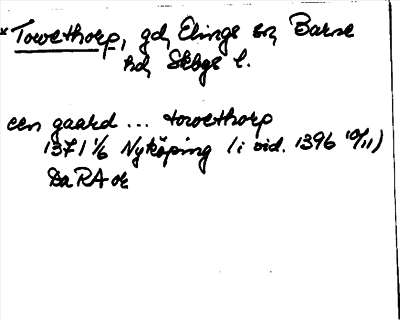 * Towethorp, gd, Elings sn, Barne
hd, Skbgs l.
een gaard ... towethorp
1371 1/6 Nyköping (i vid. 1396 10/11)
DaRA or